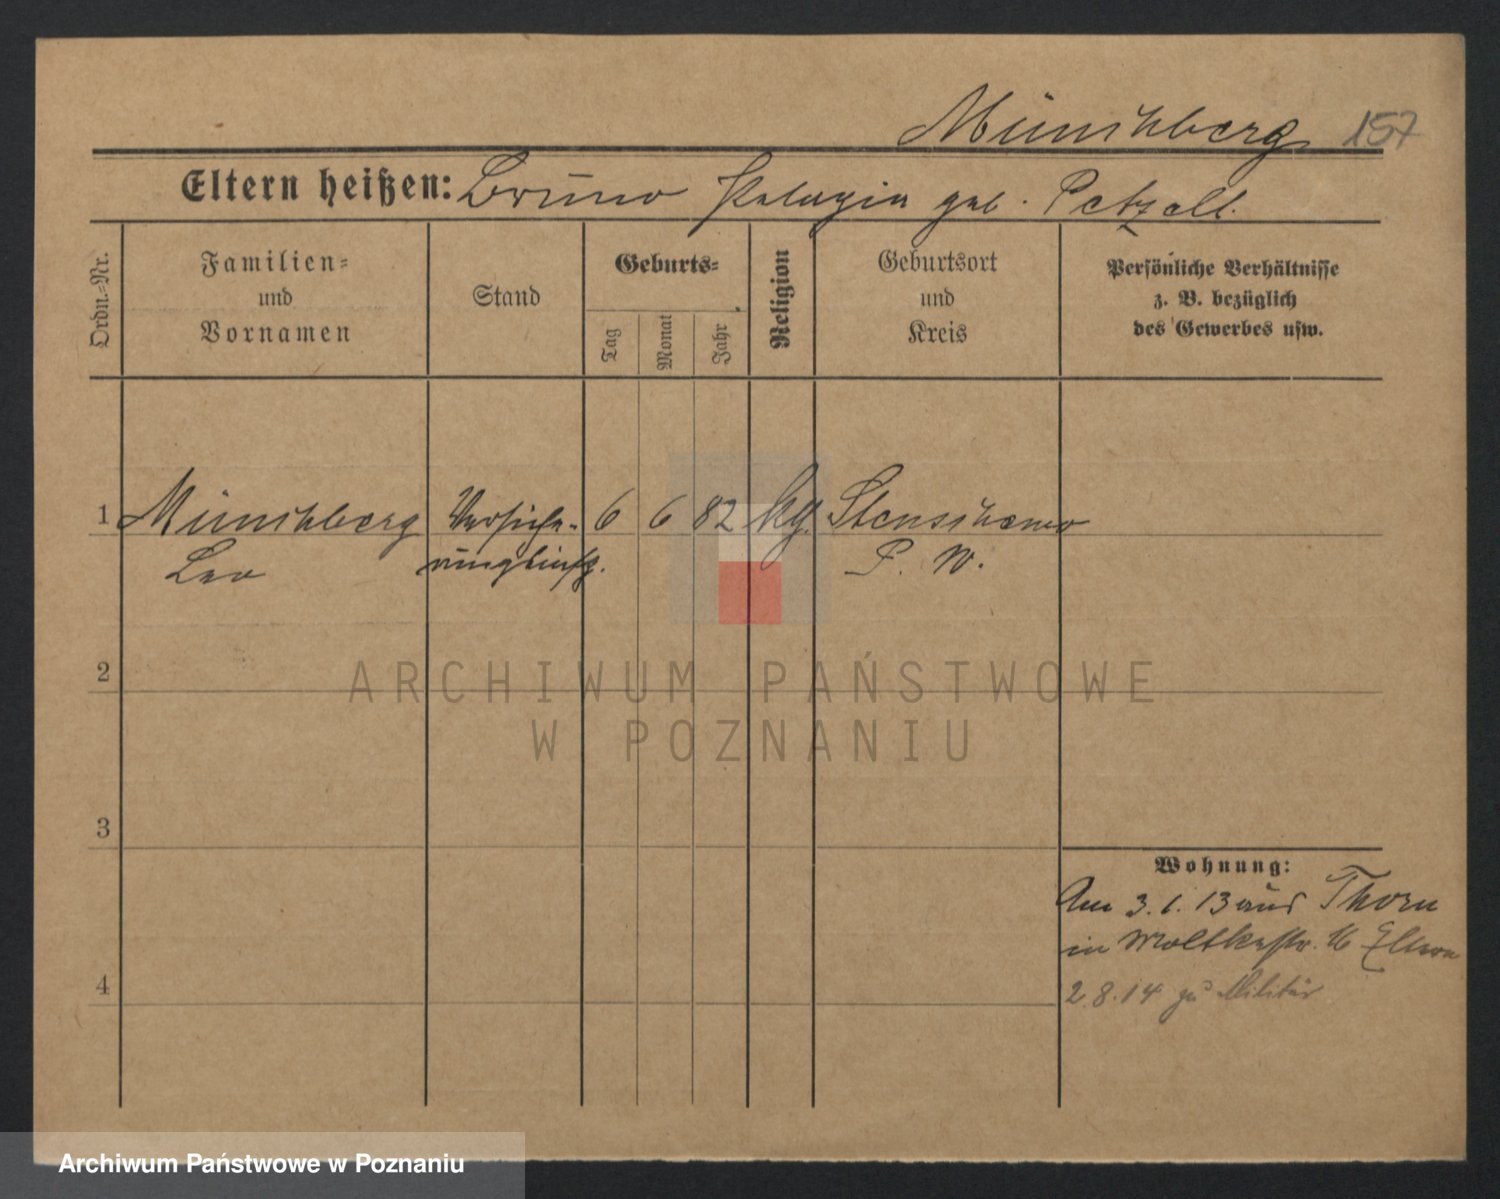 Münchberg 157
Eltern heißen: Bruno Pelagia geb. Petzelt.
Ordn.-Nr.
Familien-
und
Vornamen
Stand
Geburts-
Tag
Monat
Jahr
Religion
Geburtsort
und
Kreis
Persönliche Verhältnisse
z. B. bezüglich
des Gewerbes usw.
1 Münchberg Versiche- 6 6 82 kg.
Leo
P. W.
2
ARCHIWUM PAŃSTWOWE
W POZNANIU
3
Wohnung:
Am 3. 1. 13 aus Thorn
in Moltkestr. 16 Eltern
4
2.8.14 zu Militär
Archiwum Państwowe w Poznaniu